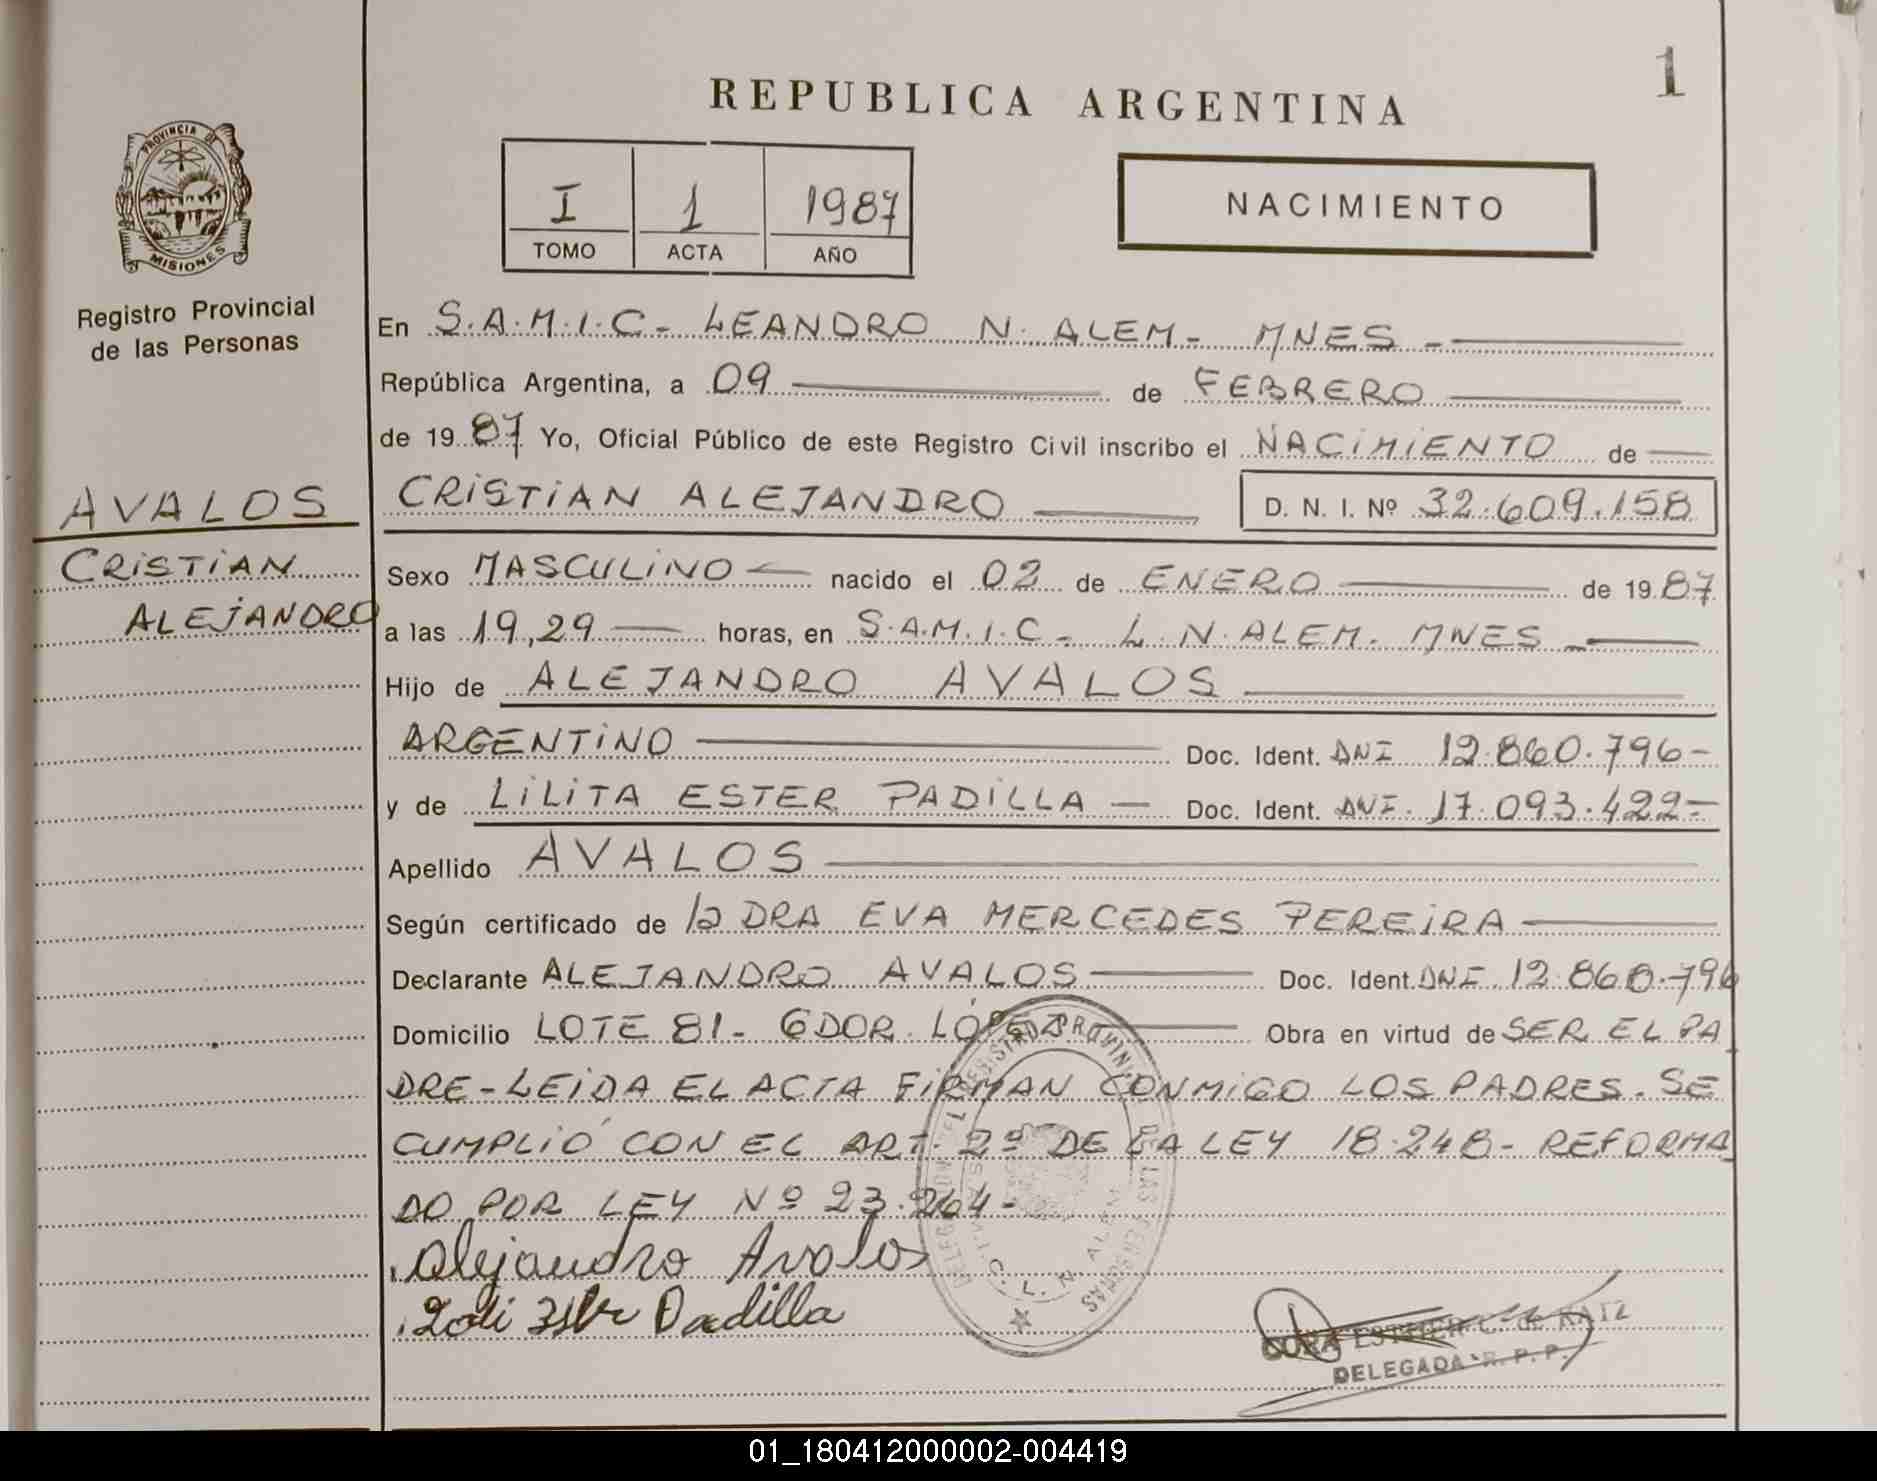 1
REPUBLICA ARGENTINA
PROVINCIA DE
MISIONES
Registro Provincial
de las Personas
I 1 1987
TOMO ACTA AÑO
NACIMIENTO
En S.A.M.I.C- LEANDRO N. ALEM- MNES -
República Argentina, a 09 de FEBRERO
de 1987 Yo, Oficial Público de este Registro Civil inscribo el NACIMIENTO de
AVALOS
CRISTIAN ALEJANDRO D. N. I. Nº 32.609.158
CRISTIAN
ALEJANDRO
Sexo MASCULINO nacido el 02 de ENERO de 1987
a las 19,29 horas, en S.A.M.I.C- L.N.ALEM- MNES -
Hijo de ALEJANDRO AVALOS
ARGENTINO Doc. Ident. DNI 12.860.796-
y de LILITA ESTER PADILLA - Doc. Ident. DNI. 17.093.422-
Apellido AVALOS
Según certificado de la DRA EVA MERCEDES PEREIRA
Declarante ALEJANDRO AVALOS Doc. Ident. DNI. 12.860.796
Domicilio LOTE 81- GDOR. LÓPEZ Obra en virtud de SER EL PA
DRE-LEIDA EL ACTA FIRMAN CONMIGO LOS PADRES. SE
CUMPLIÓ CON EL ART. 2º DE LA LEY 18.248- REFORMA
DO POR LEY Nº 23.264-
Alejandro Avalos
Padilla
DELEGACION DEL REGISTRO PROVINCIAL DE LAS PERSONAS
L. N. ALEM
ESTHER C. de KATZ
DELEGADA R. P. P.
01_180412000002-004419